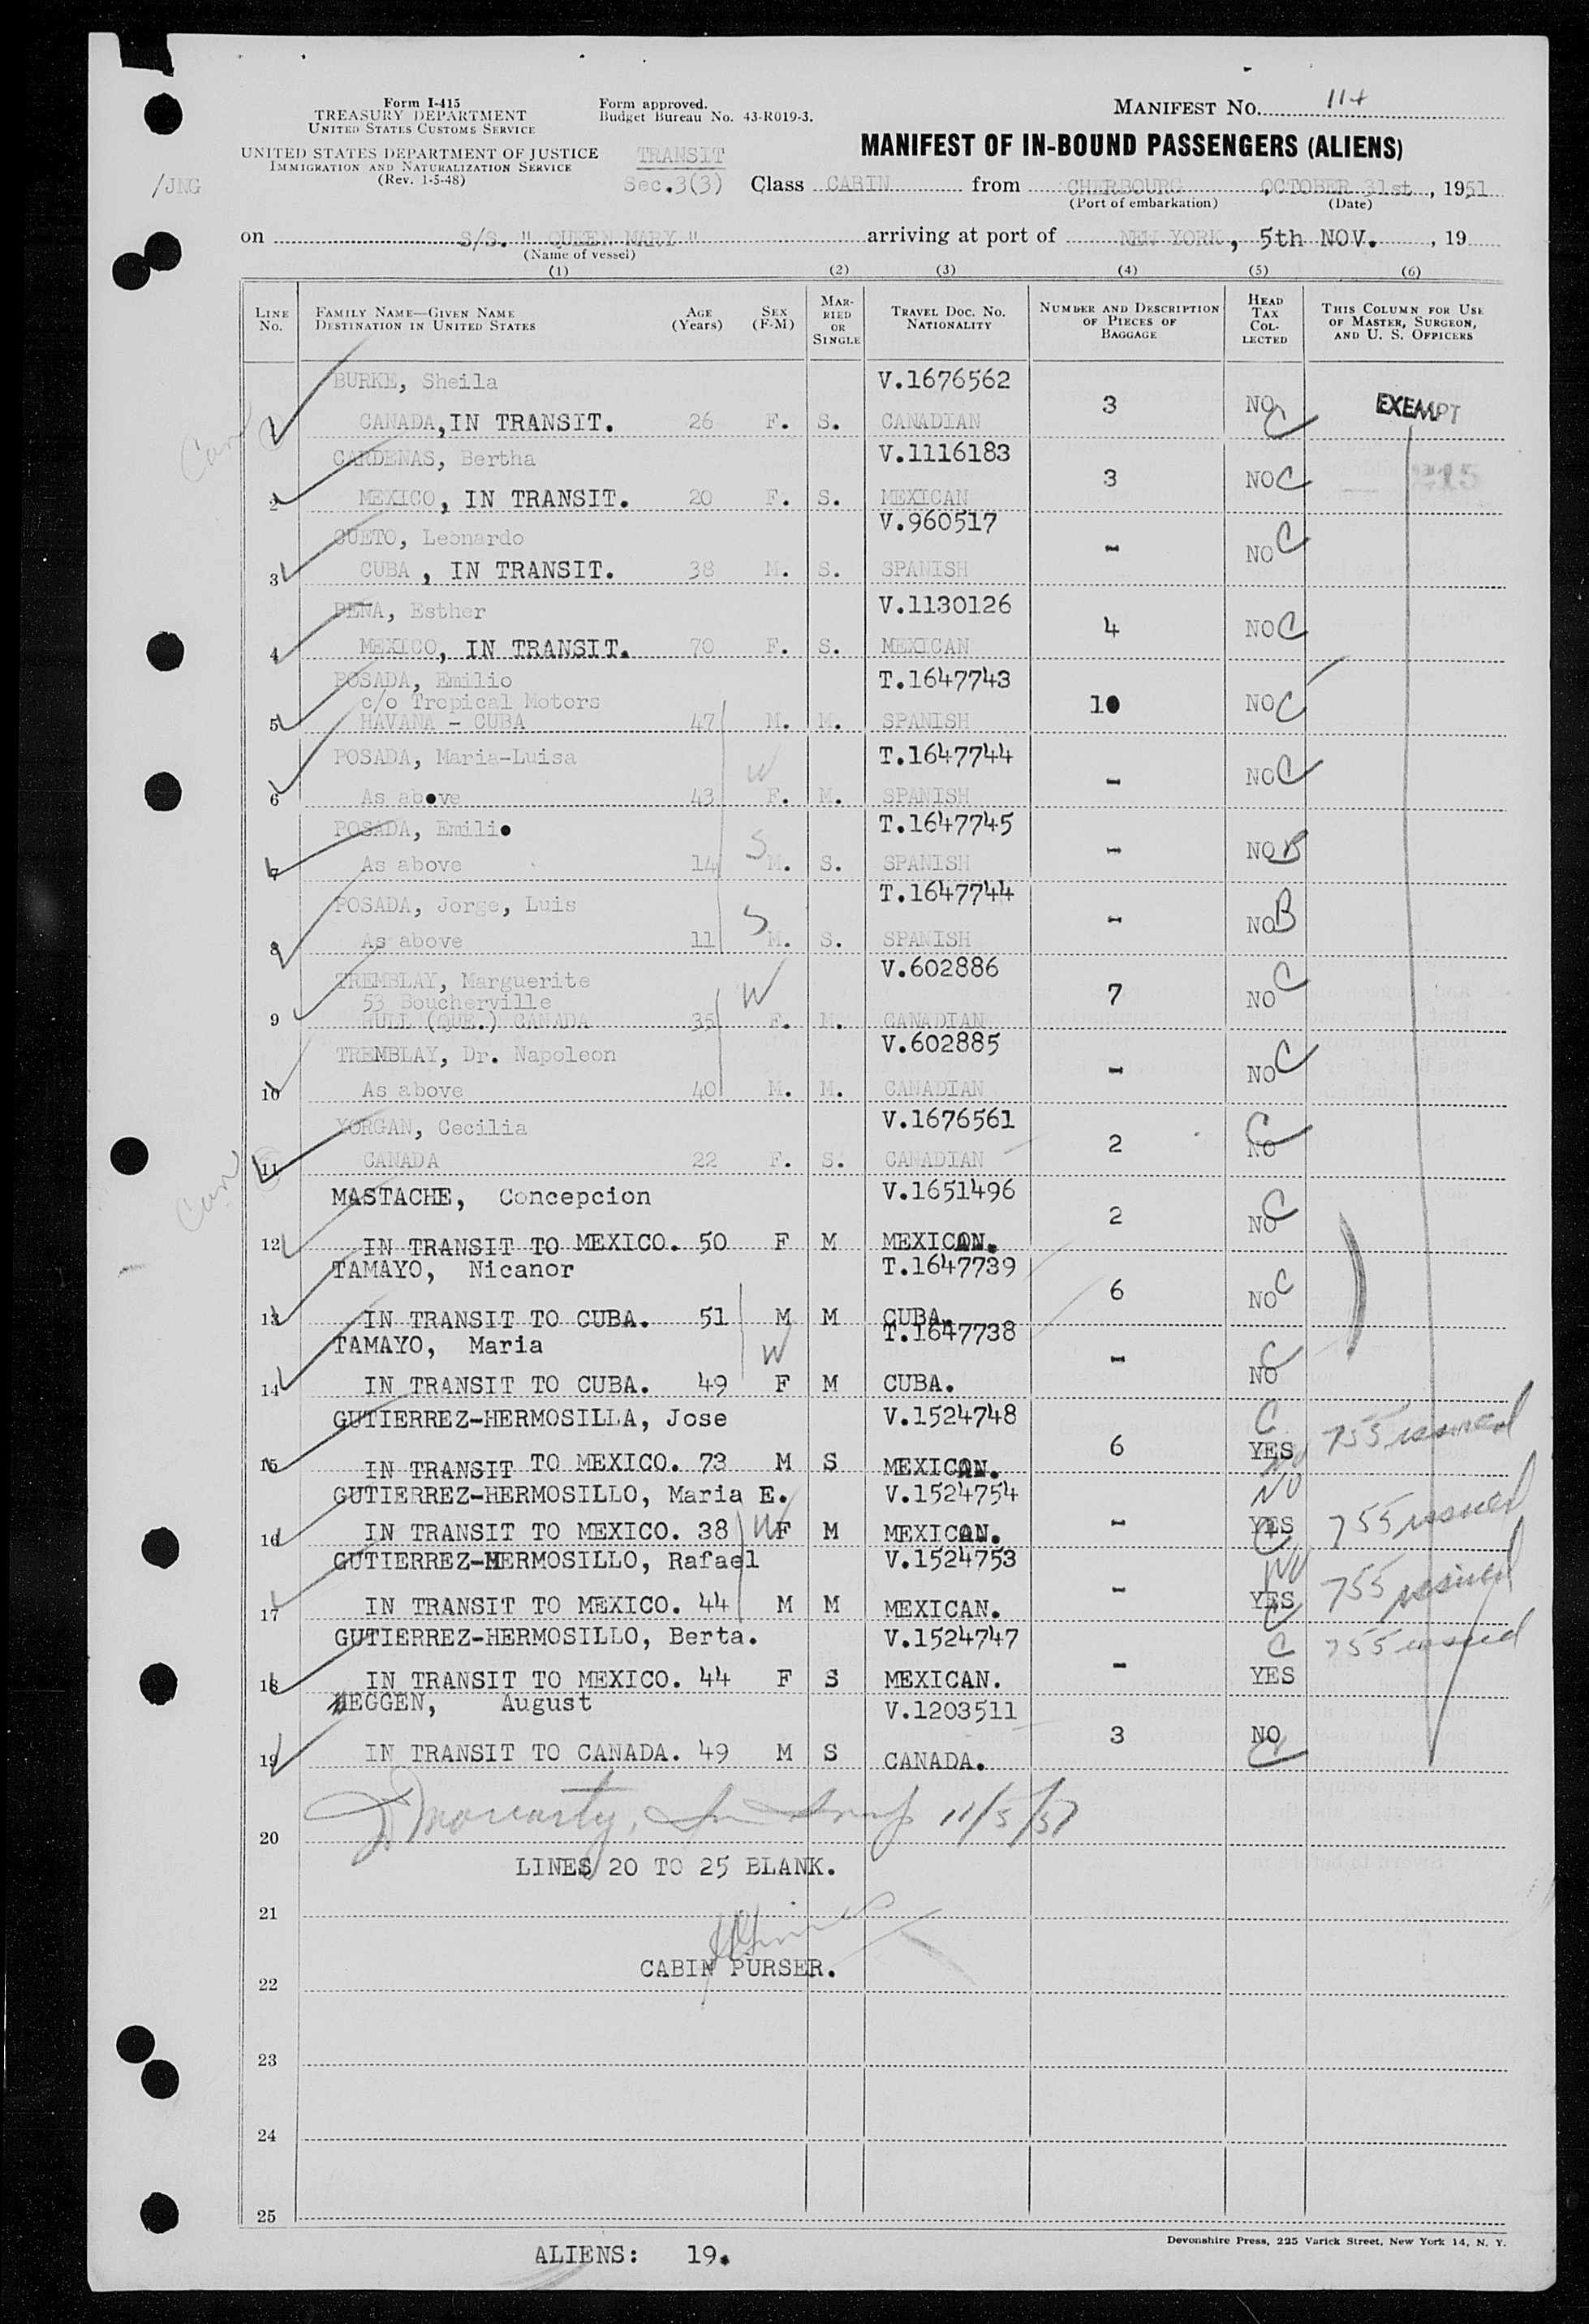 Form I-415
TREASURY DEPARTMENT
UNITED STATES CUSTOMS SERVICE
UNITED STATES DEPARTMENT OF JUSTICE
IMMIGRATION AND NATURALIZATION SERVICE
(Rev. 1-5-48)
/JNG
Form approved.
Budget Bureau No. 43-R019-3.
TRANSIT
Sec.3(3)
MANIFEST No. 114
MANIFEST OF IN-BOUND PASSENGERS (ALIENS)
Class CABIN from CHERBOURG OCTOBER 31st, 1951
(Port of embarkation) (Date)
on S/S. " QUEEN MARY " arriving at port of NEW YORK, 5th NOV., 19
(Name of vessel)
(1) (2) (3) (4) (5) (6)
LINE No. FAMILY NAME—GIVEN NAME DESTINATION IN UNITED STATES AGE (Years) SEX (F-M) MARRIED OR SINGLE TRAVEL DOC. NO. NATIONALITY NUMBER AND DESCRIPTION OF PIECES OF BAGGAGE HEAD TAX COLLECTED THIS COLUMN FOR USE OF MASTER, SURGEON, AND U. S. OFFICERS
BURKE, Sheila V.1676562
Can 1 CANADA, IN TRANSIT. 26 F. S. CANADIAN 3 NO C EXEMPT
CARDENAS, Bertha V.1116183
2 MEXICO, IN TRANSIT. 20 F. S. MEXICAN 3 NO C
CUETO, Leonardo V.960517
3 CUBA , IN TRANSIT. 38 M. S. SPANISH - NO C
PENA, Esther V.1130126
4 MEXICO, IN TRANSIT. 70 F. S. MEXICAN 4 NO C
POSADA, Emilio T.1647743
c/o Tropical Motors
5 HAVANA - CUBA 47 M. M. SPANISH 10 NO C
POSADA, Maria-Luisa T.1647744
6 As above 43 W F. M. SPANISH - NO C
POSADA, Emilio T.1647745
7 As above 14 S M. S. SPANISH - NO B
POSADA, Jorge, Luis T.1647744
8 As above 11 S M. S. SPANISH - NO B
TREMBLAY, Marguerite V.602886
53 Boucherville
9 HULL (QUE.) CANADA 35 W F. M. CANADIAN 7 NO C
TREMBLAY, Dr. Napoleon V.602885
10 As above 40 M. M. CANADIAN - NO C
YORGAN, Cecilia V.1676561
Can 11 CANADA 22 F. S. CANADIAN 2 NO C
MASTACHE, Concepcion V.1651496
12 IN TRANSIT TO MEXICO. 50 F M MEXICAN. 2 NO C
TAMAYO, Nicanor T.1647739
13 IN TRANSIT TO CUBA. 51 M M CUBA. 6 NO C
TAMAYO, Maria T.1647738
14 IN TRANSIT TO CUBA. 49 W F M CUBA. - NO C
GUTIERREZ-HERMOSILLA, Jose V.1524748
15 IN TRANSIT TO MEXICO. 73 M S MEXICAN. 6 C YES NO 755 issued
GUTIERREZ-HERMOSILLO, Maria E. V.1524754
16 IN TRANSIT TO MEXICO. 38 W F M MEXICAN. - NO YES C 755 issued
GUTIERREZ-HERMOSILLO, Rafael V.1524753
17 IN TRANSIT TO MEXICO. 44 M M MEXICAN. - NO YES C 755 issued
GUTIERREZ-HERMOSILLO, Berta. V.1524747
18 IN TRANSIT TO MEXICO. 44 F S MEXICAN. - C YES 755 issued
HEGGEN, August V.1203511
19 IN TRANSIT TO CANADA. 49 M S CANADA. 3 NO C
20 Moriarty, 11/5/51
LINES 20 TO 25 BLANK.
21
CABIN PURSER.
22
23
24
25
Devonshire Press, 225 Varick Street, New York 14, N. Y.
ALIENS: 19.